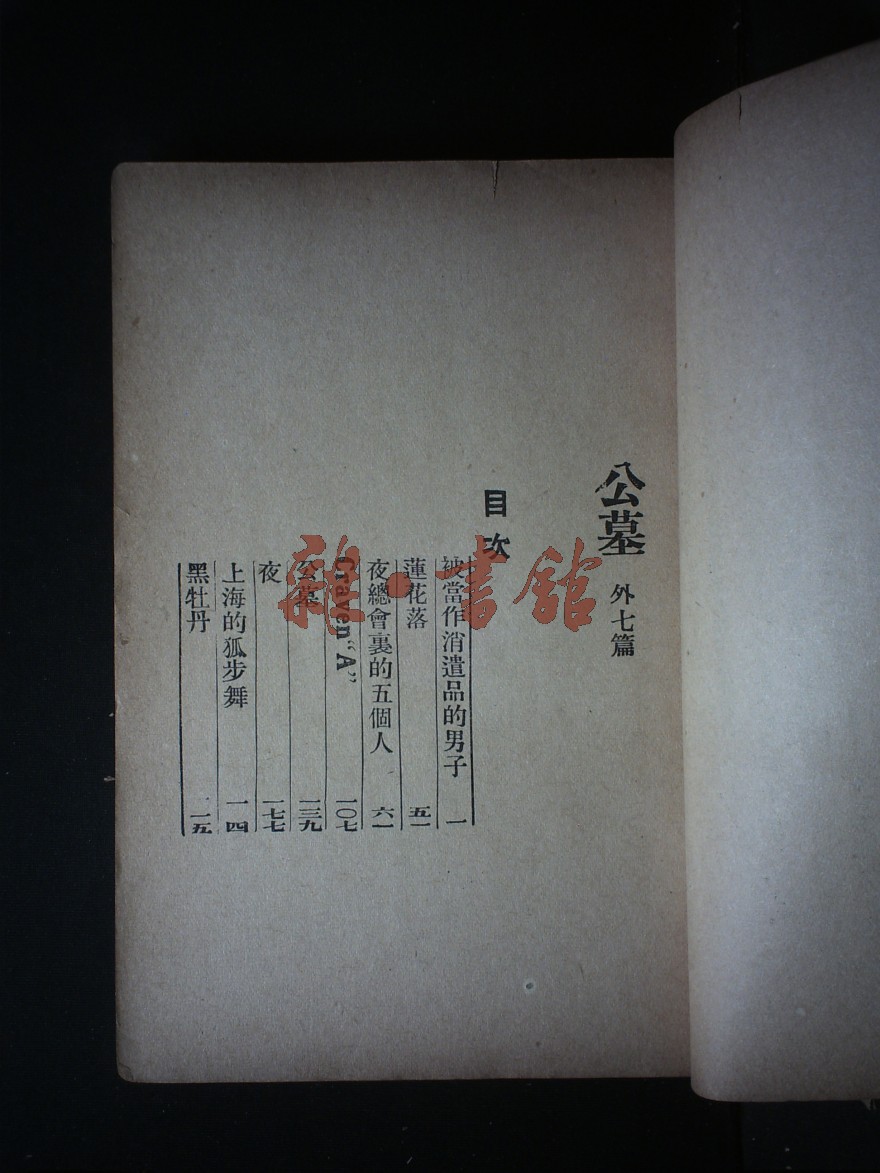 公墓 外七篇
目次
被當作消遣品的男子 一
蓮花落 五一
夜總會裏的五個人 六一
Craven“A” 一〇七
公墓 一三九
夜 一七七
上海的狐步舞 一四
黑牡丹 一五
雜·書館